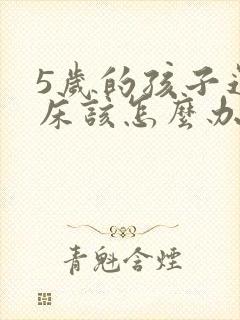 5歲的孩子
床該怎麼办
青魁含煙